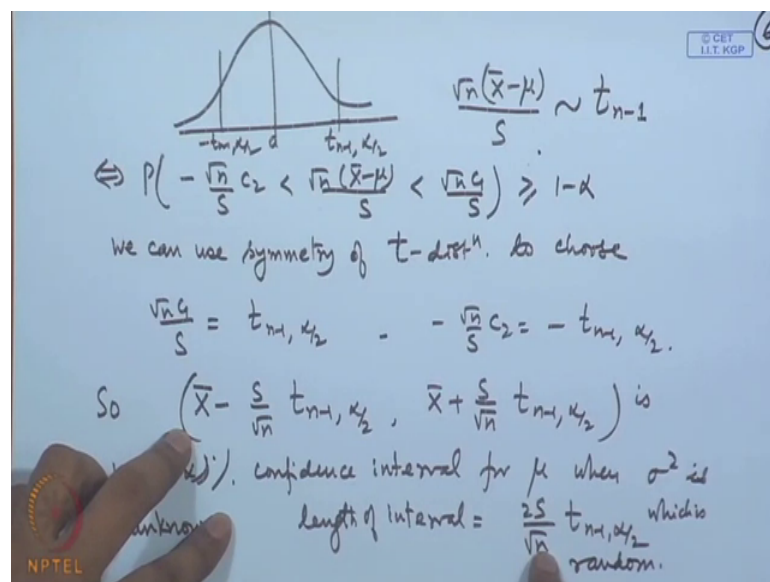 © CET
I.I.T. KGP
-t_{n-1, α/2} 0 t_{n-1, α/2}
√n(X̄-μ)/S ~ t_{n-1}
⇔ P(-√n/S c₂ < √n(X̄-μ)/S < √n c₁/S) ≥ 1-α
We can use symmetry of t-distⁿ. to choose
√n c₁/S = t_{n-1, α/2} - -√n/S c₂ = - t_{n-1, α/2}.
So (X̄ - S/√n t_{n-1, α/2}, X̄ + S/√n t_{n-1, α/2}) is
confidence interval for μ when σ² is
length of interval = 2S/√n t_{n-1, α/2} which is
random.
NPTEL